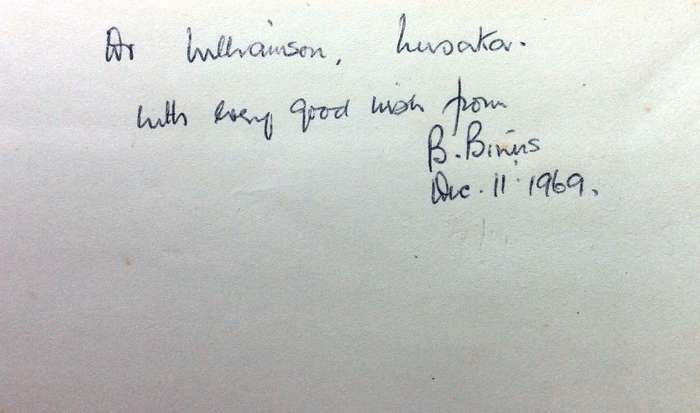 Dr Williamson, Lusaka.
With every good wish from
B. Binns
Dec. 11. 1969.